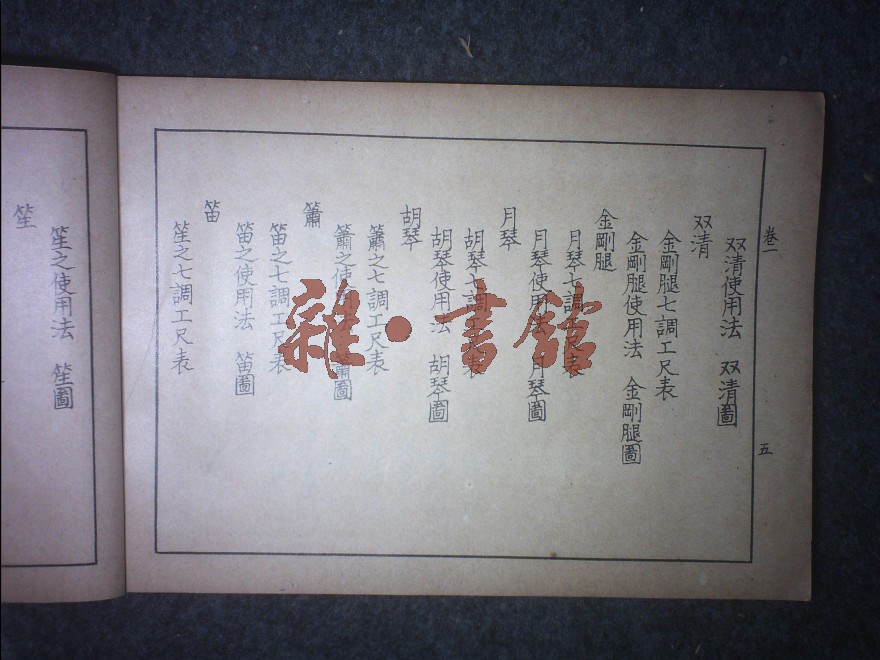 卷一 五
双清使用法 双清圖
双清
金剛腿七調工尺表
金剛腿使用法 金剛腿圖
金剛腿
月琴七調工尺表
月琴使用法 月琴圖
月琴
胡琴七調工尺表
胡琴使用法 胡琴圖
胡琴
簫之七調工尺表
簫之使用法 簫圖
簫
笛之七調工尺表
笛之使用法 笛圖
笛
笙之七調工尺表
笙之使用法 笙圖
笙
雜·書館